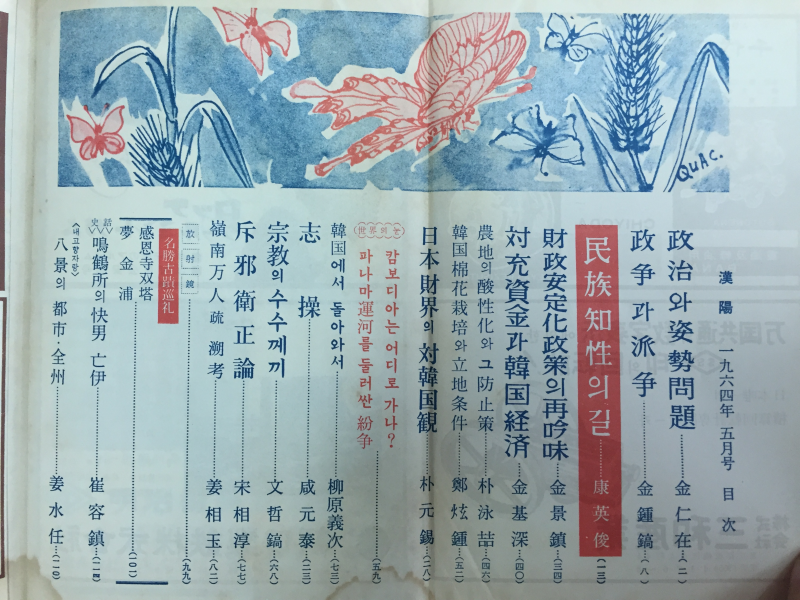 漢陽 一九六四年 五月号 目次
政治와 姿勢問題 金仁在 (二)
政争과 派争 金鍾鎬 (八)
民族知性의 길 康英俊 (一三)
財政安定化政策의 再吟味 金景鎮 (三四)
対充資金과 韓国経済 金基深 (四〇)
農地의 酸性化와 그 防止策 朴泳喆 (四六)
韓国棉花栽培와 立地条件 鄭炫鍾 (五二)
日本財界의 対韓国観 朴元錫 (二八)
世界의 눈
캄보디아는 어디로 가나?
파나마運河를 둘러싼 紛争 (五九)
韓国에서 돌아와서 柳原義次 (七三)
志操 咸元泰 (二三)
宗教의 수수께끼 文哲鎬 (六八)
斥邪衛正論 宋相淳 (七七)
嶺南万人疏 溯考 姜相玉 (八二)
放射鏡 (九九)
名勝古蹟巡礼
感恩寺双塔
夢金浦 (一〇二)
史話
鳴鶴所의 快男 亡伊 崔容鎮 (一一四)
<내고향자랑>
八景의 都市·全州 姜水任 (一一〇)
QUAC.